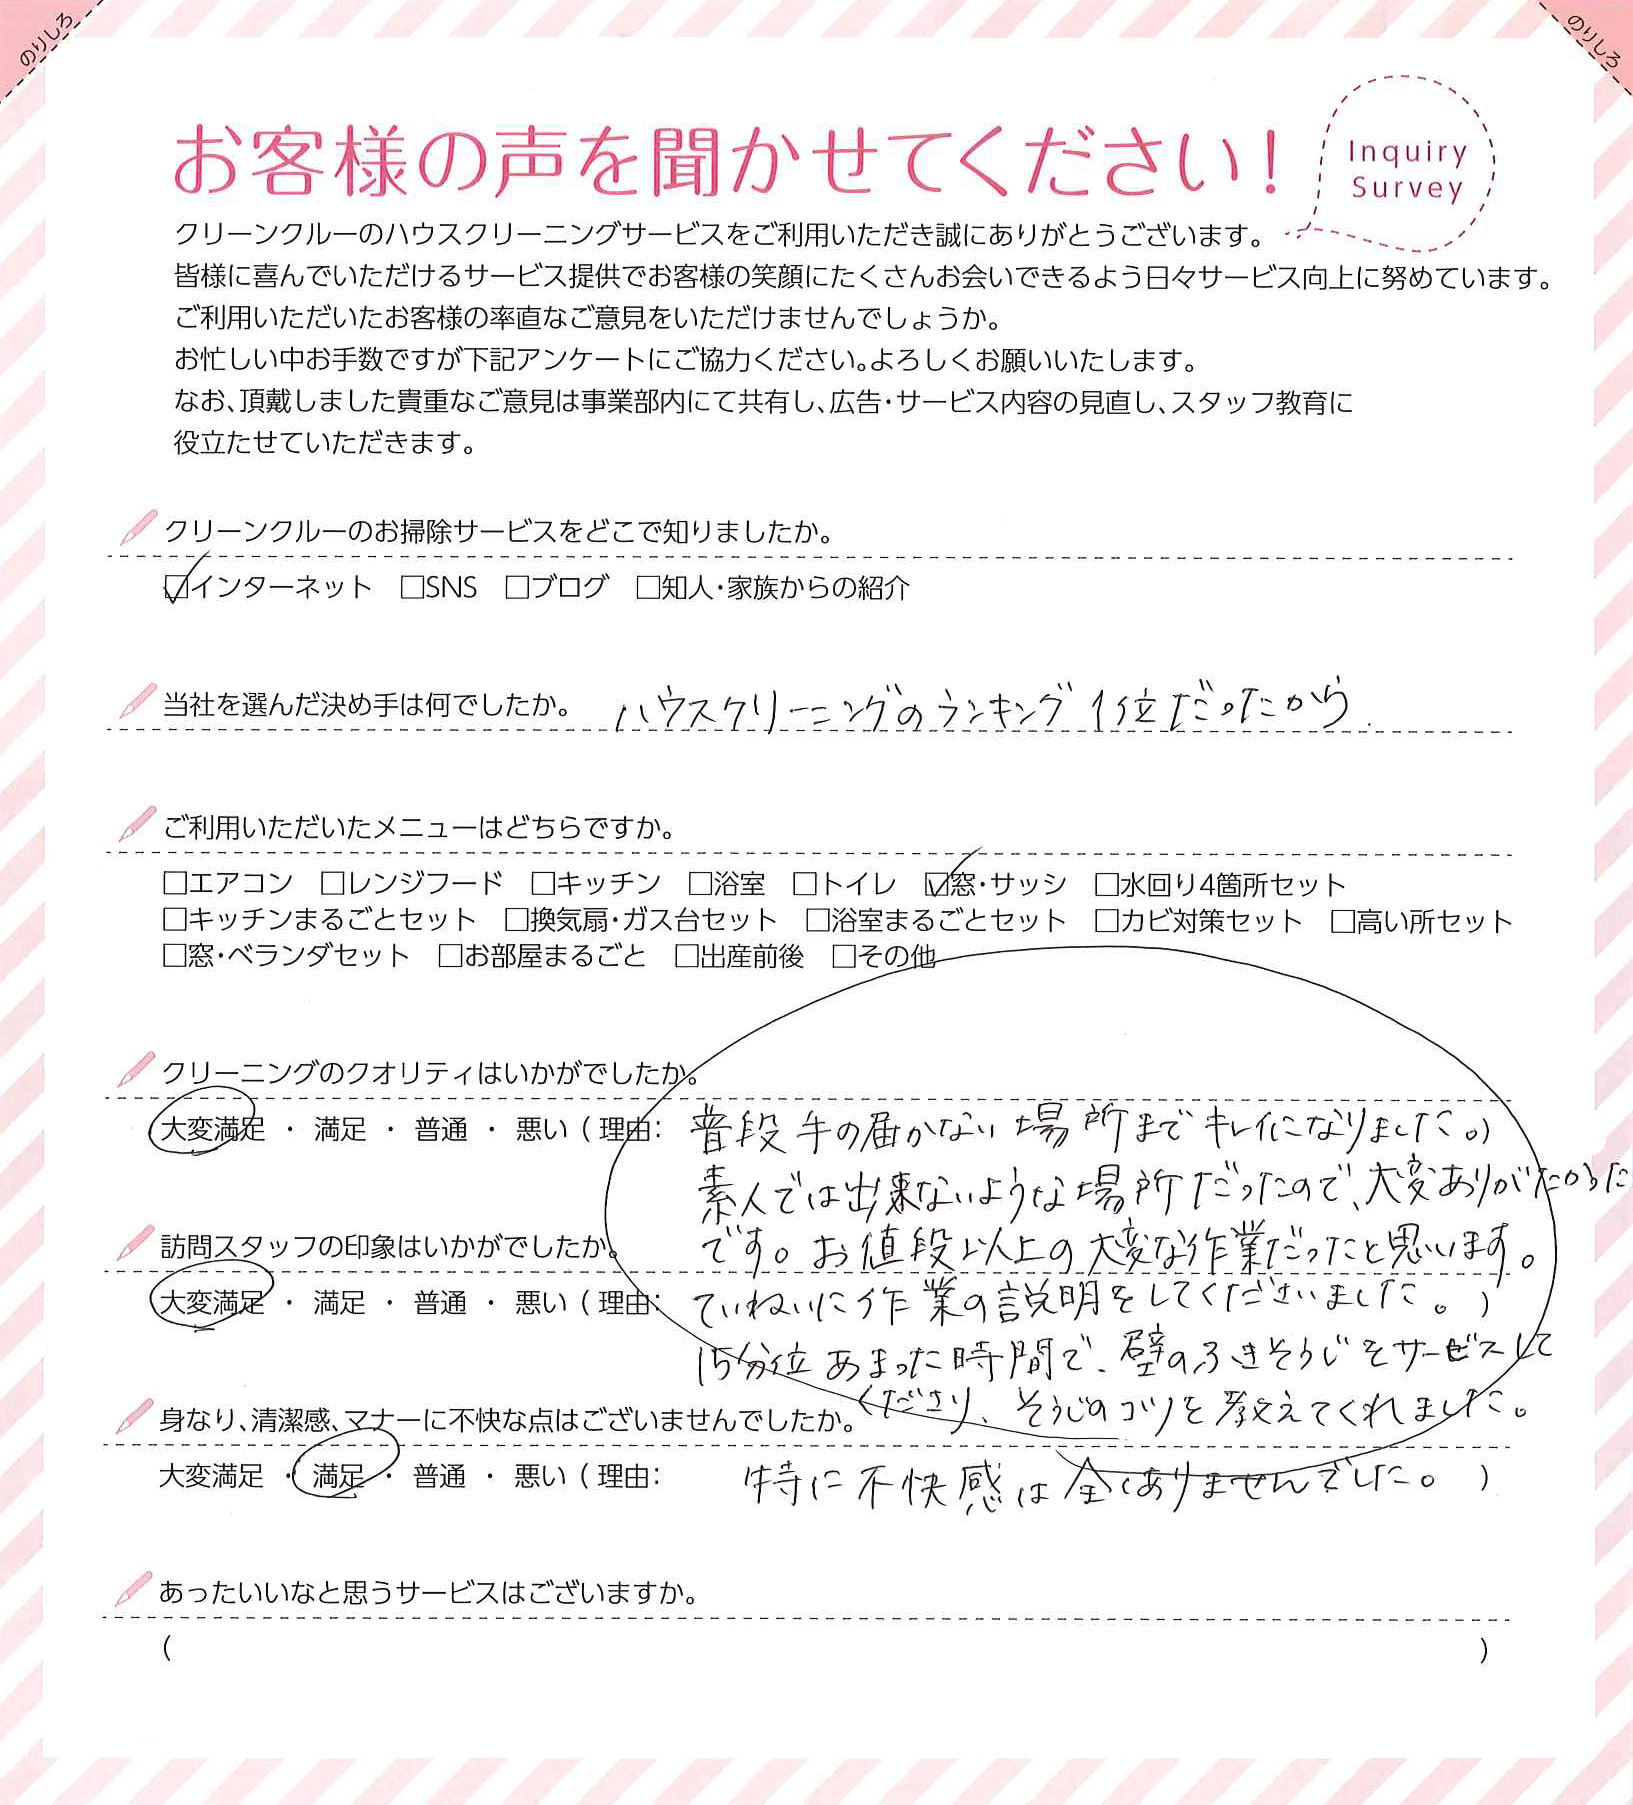 のりしろ
のりしろ
お客様の声を聞かせてください!
Inquiry
Survey
クリーンクルーのハウスクリーニングサービスをご利用いただき誠にありがとうございます。
皆様に喜んでいただけるサービス提供でお客様の笑顔にたくさんお会いできるよう日々サービス向上に努めています。
ご利用いただいたお客様の率直なご意見をいただけませんでしょうか。
お忙しい中お手数ですが下記アンケートにご協力ください。よろしくお願いいたします。
なお、頂戴しました貴重なご意見は事業部内にて共有し、広告・サービス内容の見直し、スタッフ教育に
役立たせていただきます。
クリーンクルーのお掃除サービスをどこで知りましたか。
☑インターネット □SNS □ブログ □知人・家族からの紹介
当社を選んだ決め手は何でしたか。 ハウスクリーニングのランキング1位だったから.
ご利用いただいたメニューはどちらですか。
□エアコン □レンジフード □キッチン □浴室 □トイレ ☑窓・サッシ □水回り4箇所セット
□キッチンまるごとセット □換気扇・ガス台セット □浴室まるごとセット □カビ対策セット □高い所セット
□窓・ベランダセット □お部屋まるごと □出産前後 □その他
クリーニングのクオリティはいかがでしたか。
大変満足 ・ 満足 ・ 普通 ・ 悪い ( 理由: 普段手の届かない場所までキレイになりました。)
素人では出来ないような場所だったので、大変ありがたかった
です。お値段以上の大変な作業だったと思います。
訪問スタッフの印象はいかがでしたか。
大変満足 ・ 満足 ・ 普通 ・ 悪い ( 理由: ていねいに作業の説明をしてくださいました。)
15分位あまった時間で、壁のふきそうじをサービスして
くださり、そうじのコツを教えてくれました。
身なり、清潔感、マナーに不快な点はございませんでしたか。
大変満足 ・ 満足 ・ 普通 ・ 悪い ( 理由: 特に不快感は全くありませんでした。 )
あったいいなと思うサービスはございますか。
( )